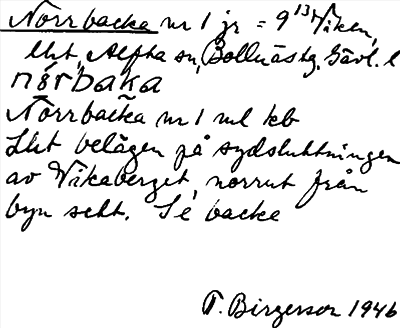 Norrbacka nr 1 jr = 9¹³ Viken,
lht, Alfta sn, Bollnäs tg. Gävl. l
nórbàka
Norrbacka nr 1 ml kb
Lht belägen på sydsluttningen
av Vikaberget, norrut från
byn sett. Se backe
T. Birgersson 1946